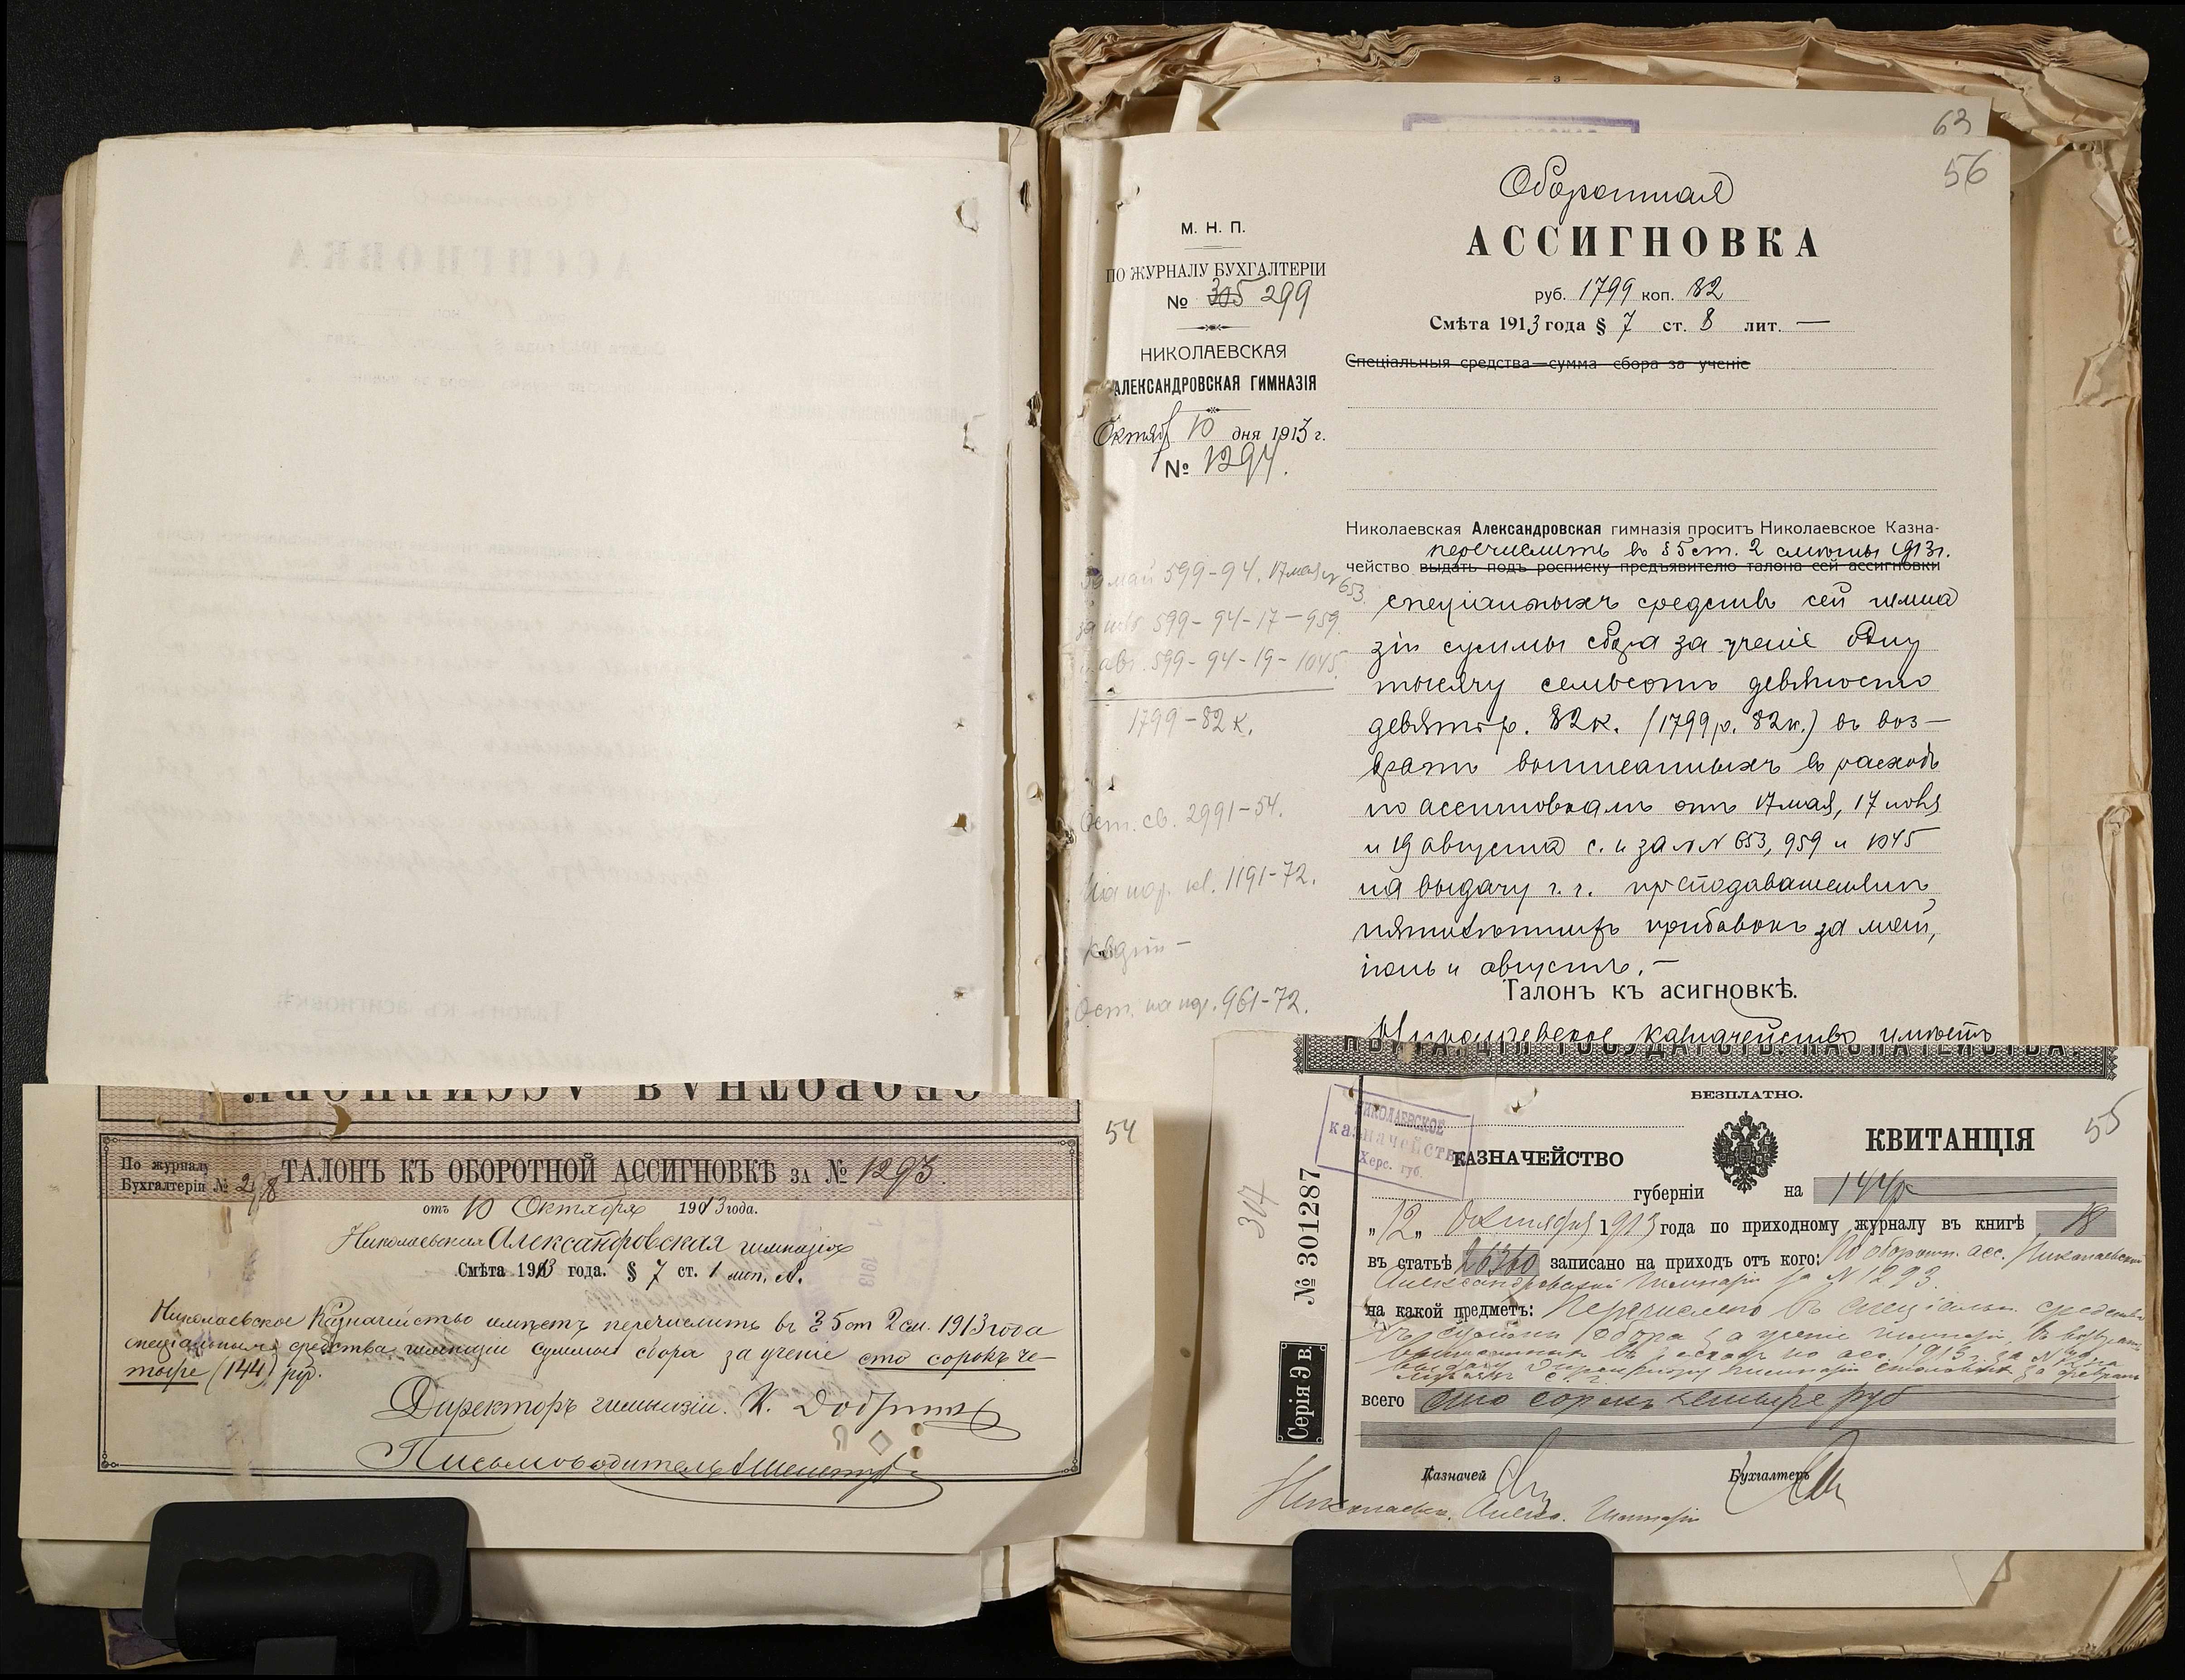 63
56
Оборотная
АССИГНОВКА
руб. 1799 коп. 82
Смѣта 1913 года § 7 ст. 8 лит. —
Спеціальныя средства—сумма сбора за ученіе
М. Н. П.
ПО ЖУРНАЛУ БУХГАЛТЕРІИ
№ 305 299
НИКОЛАЕВСКАЯ
АЛЕКСАНДРОВСКАЯ ГИМНАЗІЯ
Октяб 10 дня 1913 г.
№ 1294.
Николаевская Александровская гимназія проситъ Николаевское Казна-
перечислить въ § 5 ст. 2 смѣты 1913 г.
чейство выдать подъ росписку предъявителю талона сей ассигновки
спеціальныхъ средствъ сей гимна
зіи суммы сбора за ученіе Одну
тысячу семьсотъ девяносто
девять р. 82 к. (1799 р. 82 к.) въ воз-
вратъ выписанныхъ въ расходъ
по ассигновкамъ отъ 17 мая, 17 іюня
и 19 августа с. г. за №№ 653, 959 и 1045
на выдачу г. г. преподавателямъ
пятилѣтнихъ прибавокъ за май,
іюль и августъ. —
Талонъ къ асигновкѣ.
Николаевское казначейство имѣетъ
за май 599-94. 17 мая № 653.
599-94-17-959.
авг. 599-94-19-1045.
1799-82 к.
Ост. св. 2991-54.
1191-72.
Ост. на 961-72.
ОБОРОТНАЯ АССИГНОВКА
54
По журналу
Бухгалтеріи № 298
ТАЛОНЪ КЪ ОБОРОТНОЙ АССИГНОВКѢ ЗА № 1293.
отъ 10 Октября 1913 года.
Николаевская Александровская гимназія
Смѣта 1913 года. § 7 ст. 1 лит. А.
Николаевское Казначейство имѣетъ перечислить въ § 5 ст 2 см. 1913 года
спеціальныя средства гимназіи суммы сбора за ученіе сто сорокъ че-
тыре (144) руб.
Директоръ гимназіи. К.
Письмоводитель
КВИТАНЦІЯ ГОСУДАРСТВ. КАЗНАЧЕЙСТВА.
БЕЗПЛАТНО.
55
НИКОЛАЕВСКОЕ
казначейство
Херс. губ.
КАЗНАЧЕЙСТВО
КВИТАНЦІЯ
губерніи на 144 р
„12„ Октября 1913 года по приходному журналу въ книгѣ 18
въ статьѣ 26360 записано на приходъ отъ кого: По оборотн. асс. Николаевской
Александровской Гимназіи за № 1293.
на какой предметъ: Перечислено въ спеціальн. средства
сбора за ученіе гимназіи, въ возврат
всего Сто сорокъ четыре руб
Казначей
Бухгалтеръ
Николаевск. Алекс. Гимназіи
317
№ 301287
Серія Э в.